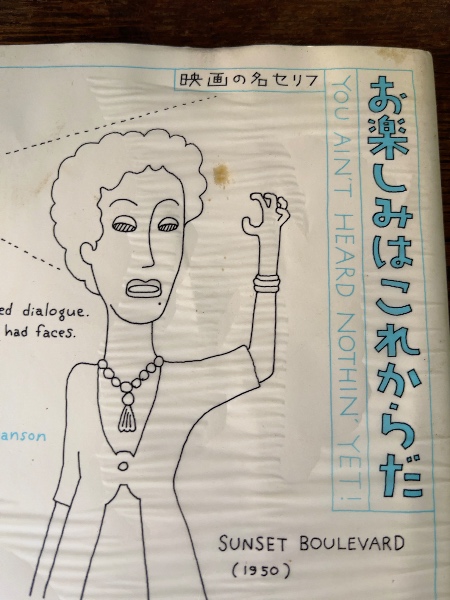 映画の名セリフ
お楽しみはこれからだ
YOU AIN'T HEARD NOTHIN' YET!
dialogue.
had faces.
SUNSET BOULEVARD
(1950)